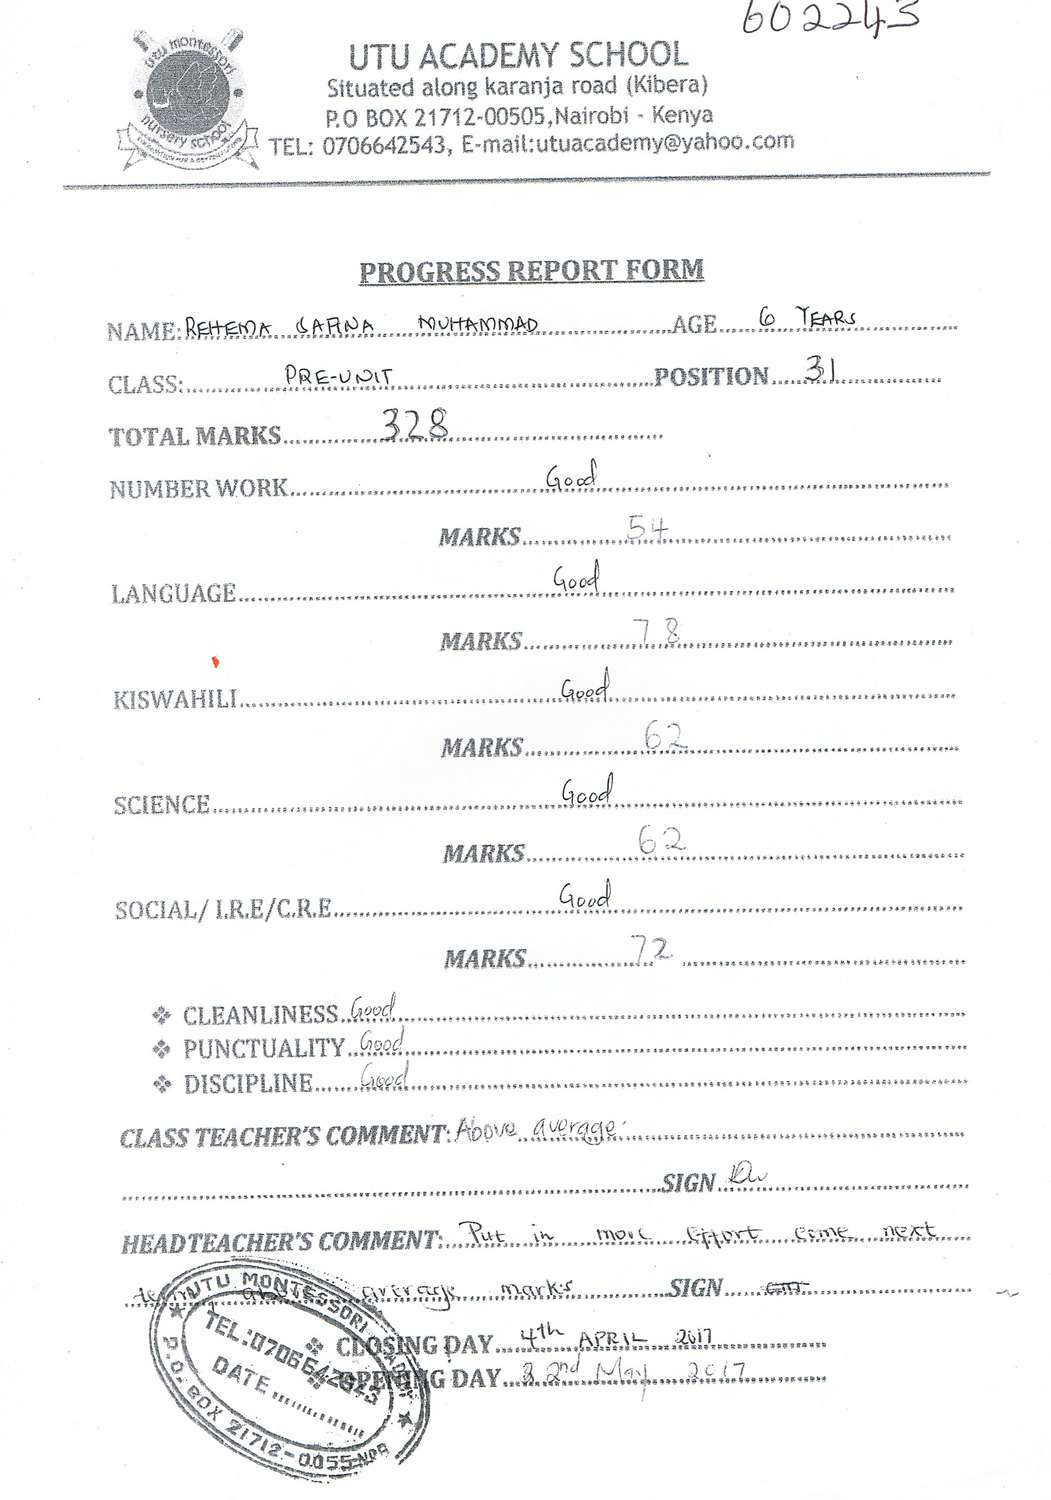 602243
utu montessori
nursery school
UTU ACADEMY SCHOOL
Situated along karanja road (Kibera)
P.O BOX 21712-00505,Nairobi - Kenya
TEL: 0706642543, E-mail:utuacademy@yahoo.com
PROGRESS REPORT FORM
NAME: REHEMA SAFINA MUHAMMAD AGE 6 YEARS
CLASS: PRE-UNIT POSITION 31
TOTAL MARKS 328
NUMBER WORK Good
MARKS 54
LANGUAGE Good
MARKS 78
KISWAHILI Good
MARKS 62
SCIENCE Good
MARKS 62
SOCIAL/ I.R.E/C.R.E Good
MARKS 72
❖ CLEANLINESS Good
❖ PUNCTUALITY Good
❖ DISCIPLINE Good
CLASS TEACHER'S COMMENT: Above average.
SIGN
HEADTEACHER'S COMMENT: Put in more effort come next
term average marks SIGN
❖ CLOSING DAY 4th APRIL 2017
❖ OPENING DAY 2nd May 2017
UTU MONTESSORI ACADEMY
TEL:0706642543
DATE
P.O. BOX 21712-0055-NRB